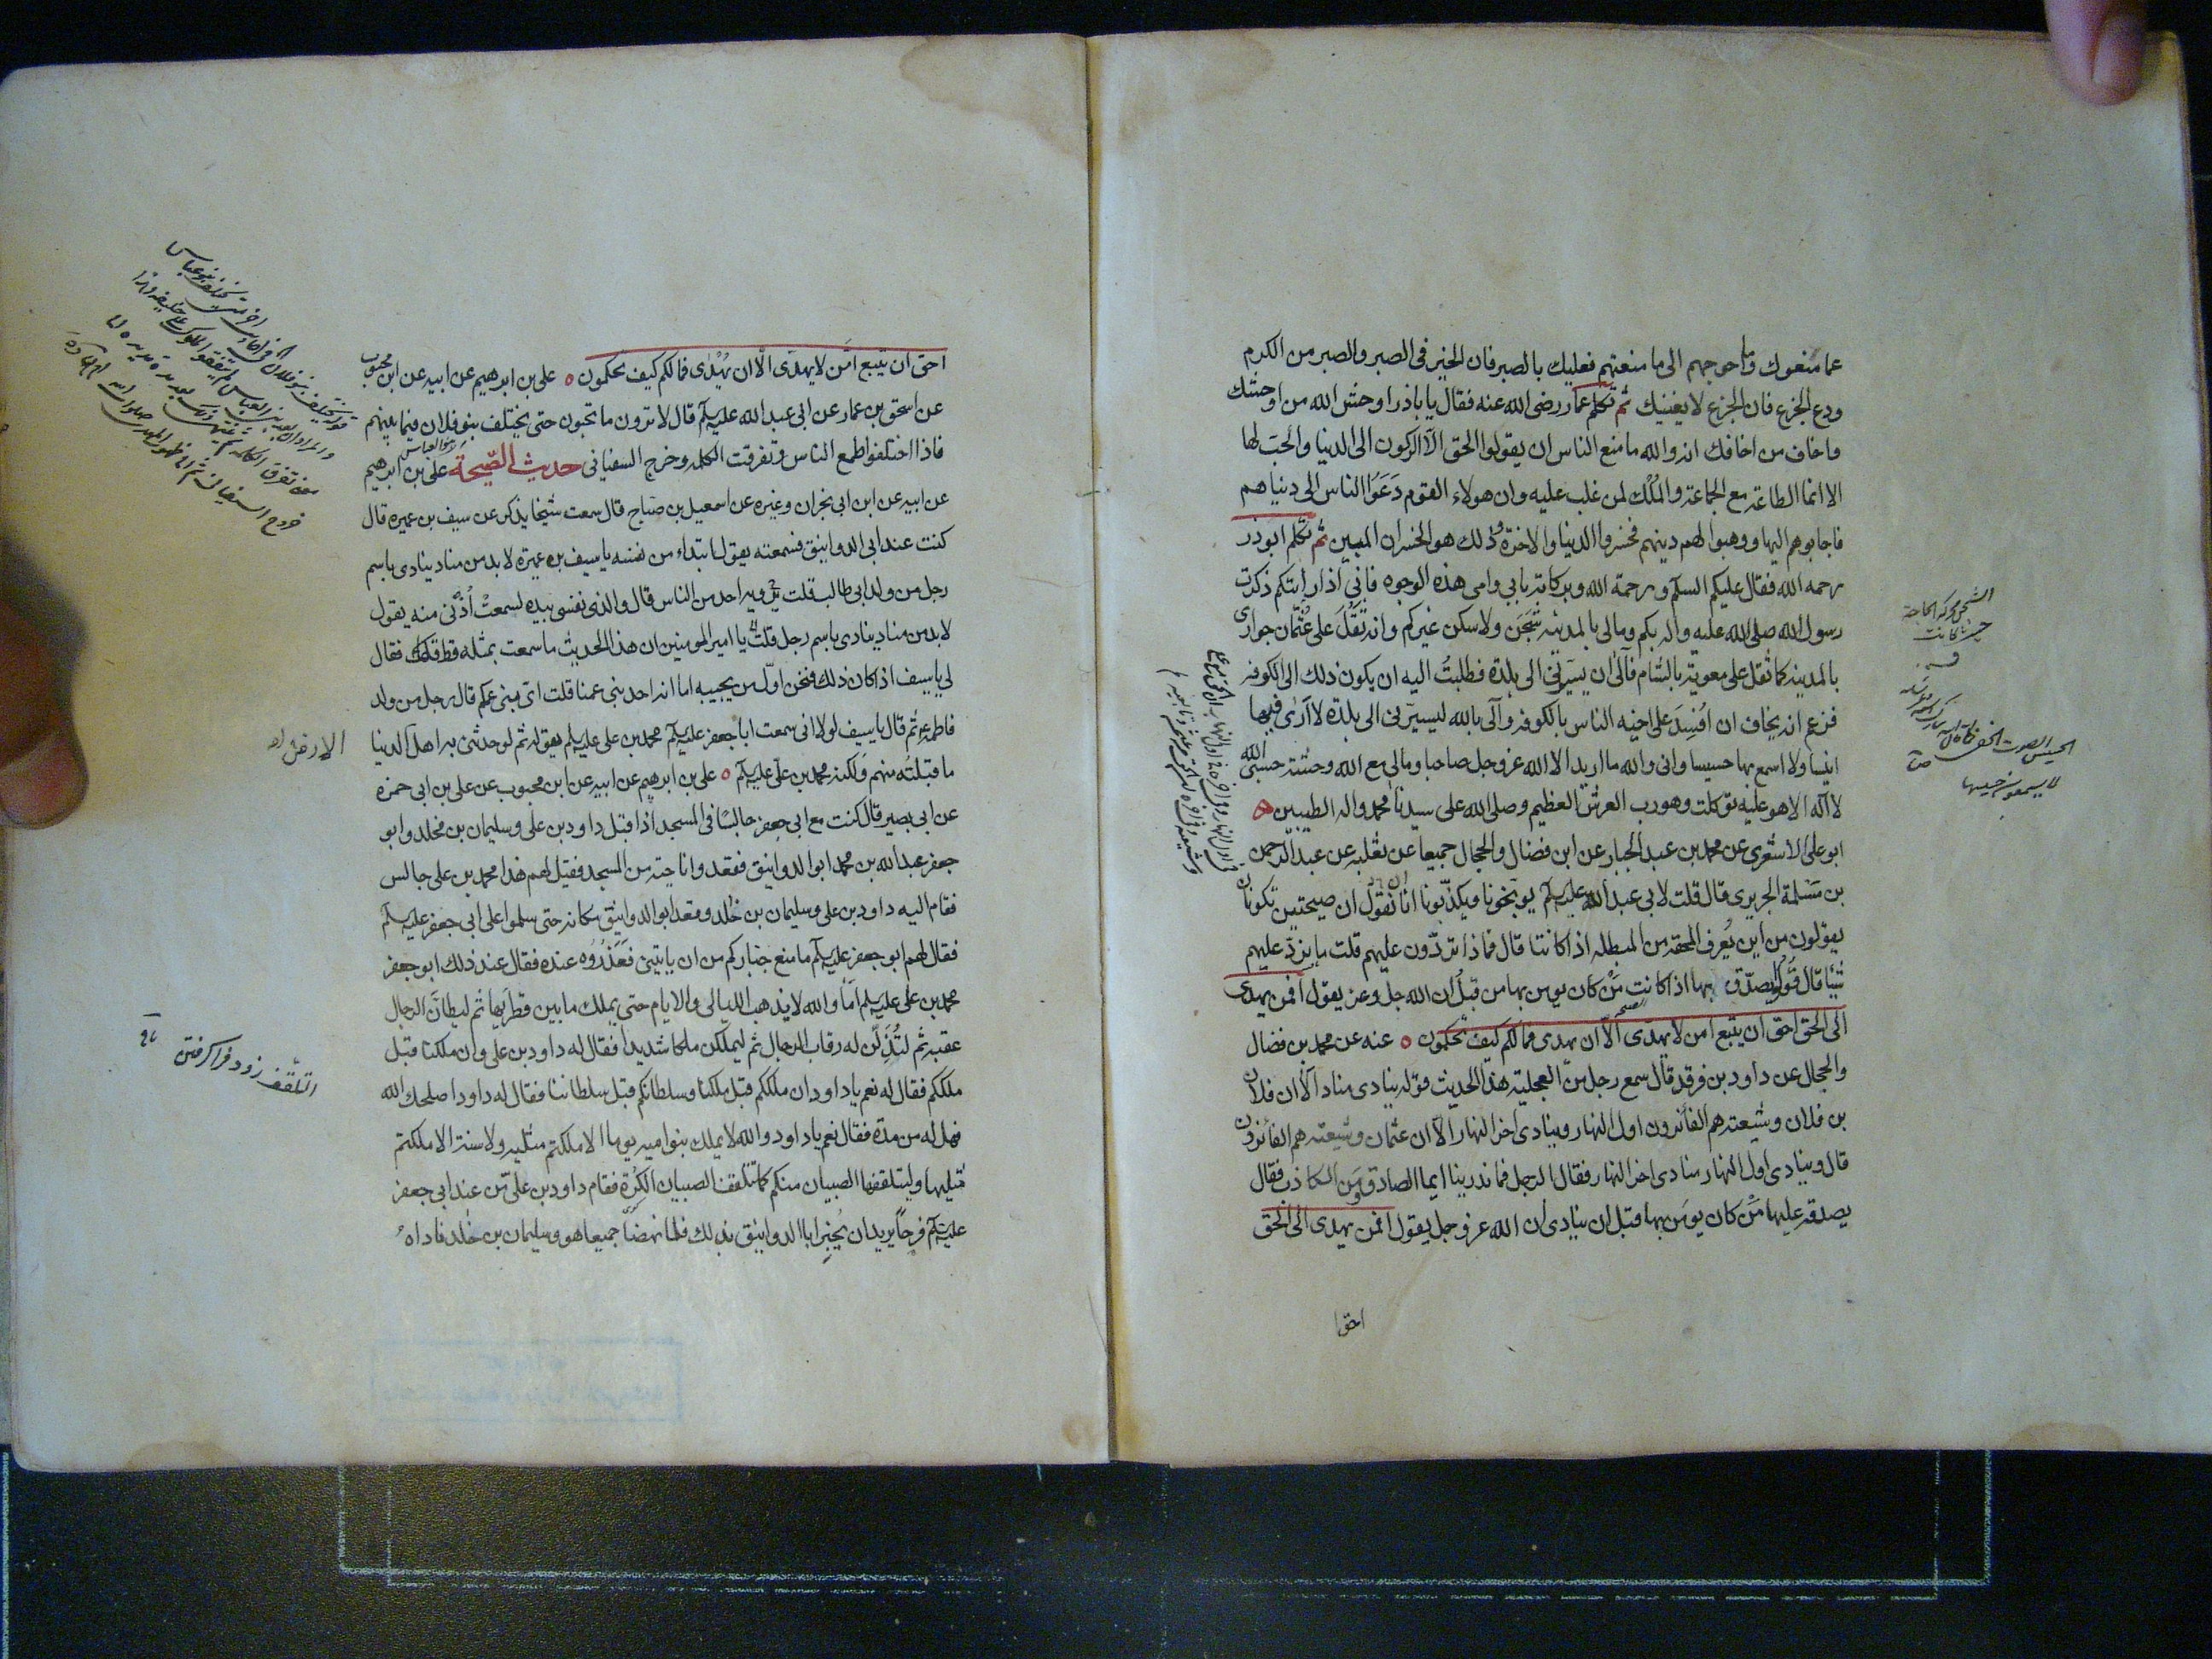 عما منعوك وما احوجهم الى ما منعتهم فعليك بالصبر فان الخير فى الصبر والصبر من الكرم
ودع الجزع فان الجزع لا يغنيك ثم تكلم عمار رضى الله عنه فقال يا باذر اوحش الله من اوحشك
واخاف من اخافك انه والله ما منع الناس ان يقولوا الحق الا الركون الى الدنيا والحب لها
الا انما الطاعة مع الجماعة والملك لمن غلب عليه وان هولاء القوم دعوا الناس الى دنياهم
فاجابوهم اليها ووهبوا لهم دينهم فخسروا الدنيا والاخرة وذلك هو الخسران المبين ثم تكلم ابوذر
رحمه الله فقال عليكم السلم ورحمة الله وبركاته بابي وامى هذه الوجوه فاني اذا رايتكم ذكرت
رسول الله صلى الله عليه واله بكم ومالى بالمدينه شجن ولا سكن غيركم وانه ثقل على عثمان جوارى
بالمدينه كما ثقل على معوية بالشام فآلى ان يسيرنى الى بلدة فطلبت اليه ان يكون ذلك الى الكوفه
فزعم انه يخاف ان افسد على اخيه الناس بالكوفه وآلى بالله ليسيرنى الى بلدة لا ارى فيها
انيسا ولا اسمع بها حسيسا وانى والله ما اريد الا الله عزوجل صاحبا ومالى مع الله وحشة حسبى الله
لا اله الا هو عليه توكلت وهو رب العرش العظيم وصلى الله على سيدنا محمد واله الطيبين
ابو على الاشعرى عن محمد بن عبد الجبار عن ابن فضال والحجال جميعا عن ثعلبه عن عبد الرحمن
بن مسلمة الجريرى قال قلت لابى عبد الله عليه السلم يوبخونا ويكذبونا انا نقول ان صيحتين تكونان
يقولون من اين يعرف المحقه من المبطله اذا كانتا قال فماذا تردون عليهم قلت ما نرد عليهم
شيئا قال قولوا يصدق بها اذا كانت من كان يومن بها من قبل ان الله جل وعز يقول افمن يهدى
الى الحق احق ان يتبع امن لا يهدى الا ان يهدى فما لكم كيف تحكمون عنه عن محمد بن فضال
والحجال عن داود بن فرقد قال سمع رجل من العجلية هذا الحديث قوله ينادى مناد الا ان فلان
بن فلان وشيعته هم الفائزون اول النهار وينادى اخر النهار الا ان عثمان وشيعته هم الفائزون
قال وينادى اول النهار منادى اخر النهار فقال الرجل فما ندرينا ايما الصادق من الكاذب فقال
يصدقه عليها من كان يومن بها قبل ان ينادى ان الله عزوجل يقول افمن يهدى الى الحق
احق
احق ان يتبع امن لا يهدى الا ان يهدى فمالكم كيف تحكمون على بن ابرهيم عن ابيه عن ابن محبوب
عن اسحق بن عمار عن ابى عبد الله عليه السلم قال لا ترون ما تحبون حتى يختلف بنو فلان فيما بينهم
فاذا اختلفوا طمع الناس وتفرقت الكلمه وخرج السفيانى حديث الصيحة على بن ابرهيم
عن ابيه عن ابن ابى نجران وغيره عن اسمعيل بن صباح قال سمعت شيخا يذكر عن سيف بن عميره قال
كنت عند ابى الدوانيق فسمعته يقول ابتداء من نفسه يا سيف بن عميرة لا بد من مناد ينادى باسم
رجل من ولد ابى طالب قلت يرويه احد من الناس قال والذى نفسى بيده لسمعت اذنى منه يقول
لابد من مناد ينادى باسم رجل قلت يا امير المومنين ان هذا الحديث ما سمعت بمثله قط فقال
لى يا سيف اذا كان ذلك فنحن اول من يجيبه اما انه احد بنى عمنا قلت اى بنى عمكم قال رجل من ولد
فاطمه ثم قال يا سيف لولا انى سمعت ابا جعفر عليه السلم محمد بن على عليه السلم يقوله ثم لو حدثنى به اهل الدنيا
ما قبلته منهم ولكنه محمد بن على عليه السلم على بن ابرهيم عن ابيه عن ابن محبوب عن على بن ابى حمزه
عن ابى بصير قال كنت مع ابى جعفر جالسا فى المسجد اذا قبل داود بن على وسليمان بن مخلد وابو
جعفر عبد الله بن محمد ابو الدوانيق فقعدوا ناحية من المسجد فقيل لهم هذا محمد بن على جالس
فقام اليه داود بن على وسليمان بن خلد وقعد ابو الدوانيق مكانه حتى سلموا على ابى جعفر عليه السلم
فقال لهم ابو جعفر عليه السلم ما منع جباركم من ان ياتينى فعذروه عنده فقال عند ذلك ابو جعفر
محمد بن على عليه السلم اما والله لا يذهب الليالى والايام حتى يملك ما بين قطريها ثم ليطان الرجال
عقبه ثم لتذلن له رقاب الرجال ثم ليملكن ملكا شديدا فقال له داود بن على وان ملكنا قبل
ملككم فقال له نعم يا داود ان ملككم قبل ملكنا وسلطانكم قبل سلطاننا فقال له داود اصلحك الله
فهل له من مدة فقال نعم يا داود والله لا يملك بنو اميه يوما الا ملكتم مثليه ولا سنة الا ملكتم
مثليها وليتلقفها الصبيان منكم كما تتلقف الصبيان الكرة فقام داود بن على من عند ابى جعفر
عليه السلم فرحا يريد ان يخبر ابا الدوانيق بذلك فلما نهضا جميعا هو وسليمان بن خلد ناداه